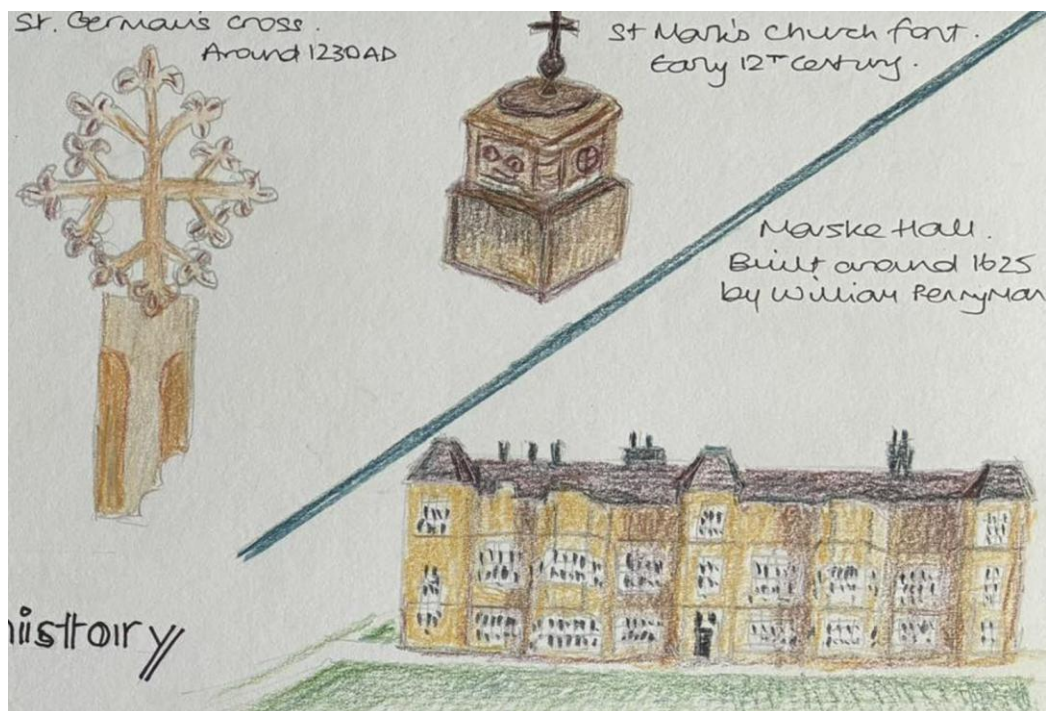 St. German's cross.
Around 1230AD
St Mark's Church font.
Early 12T Century.
Marske Hall.
Built around 1625
by William Pennyman
history